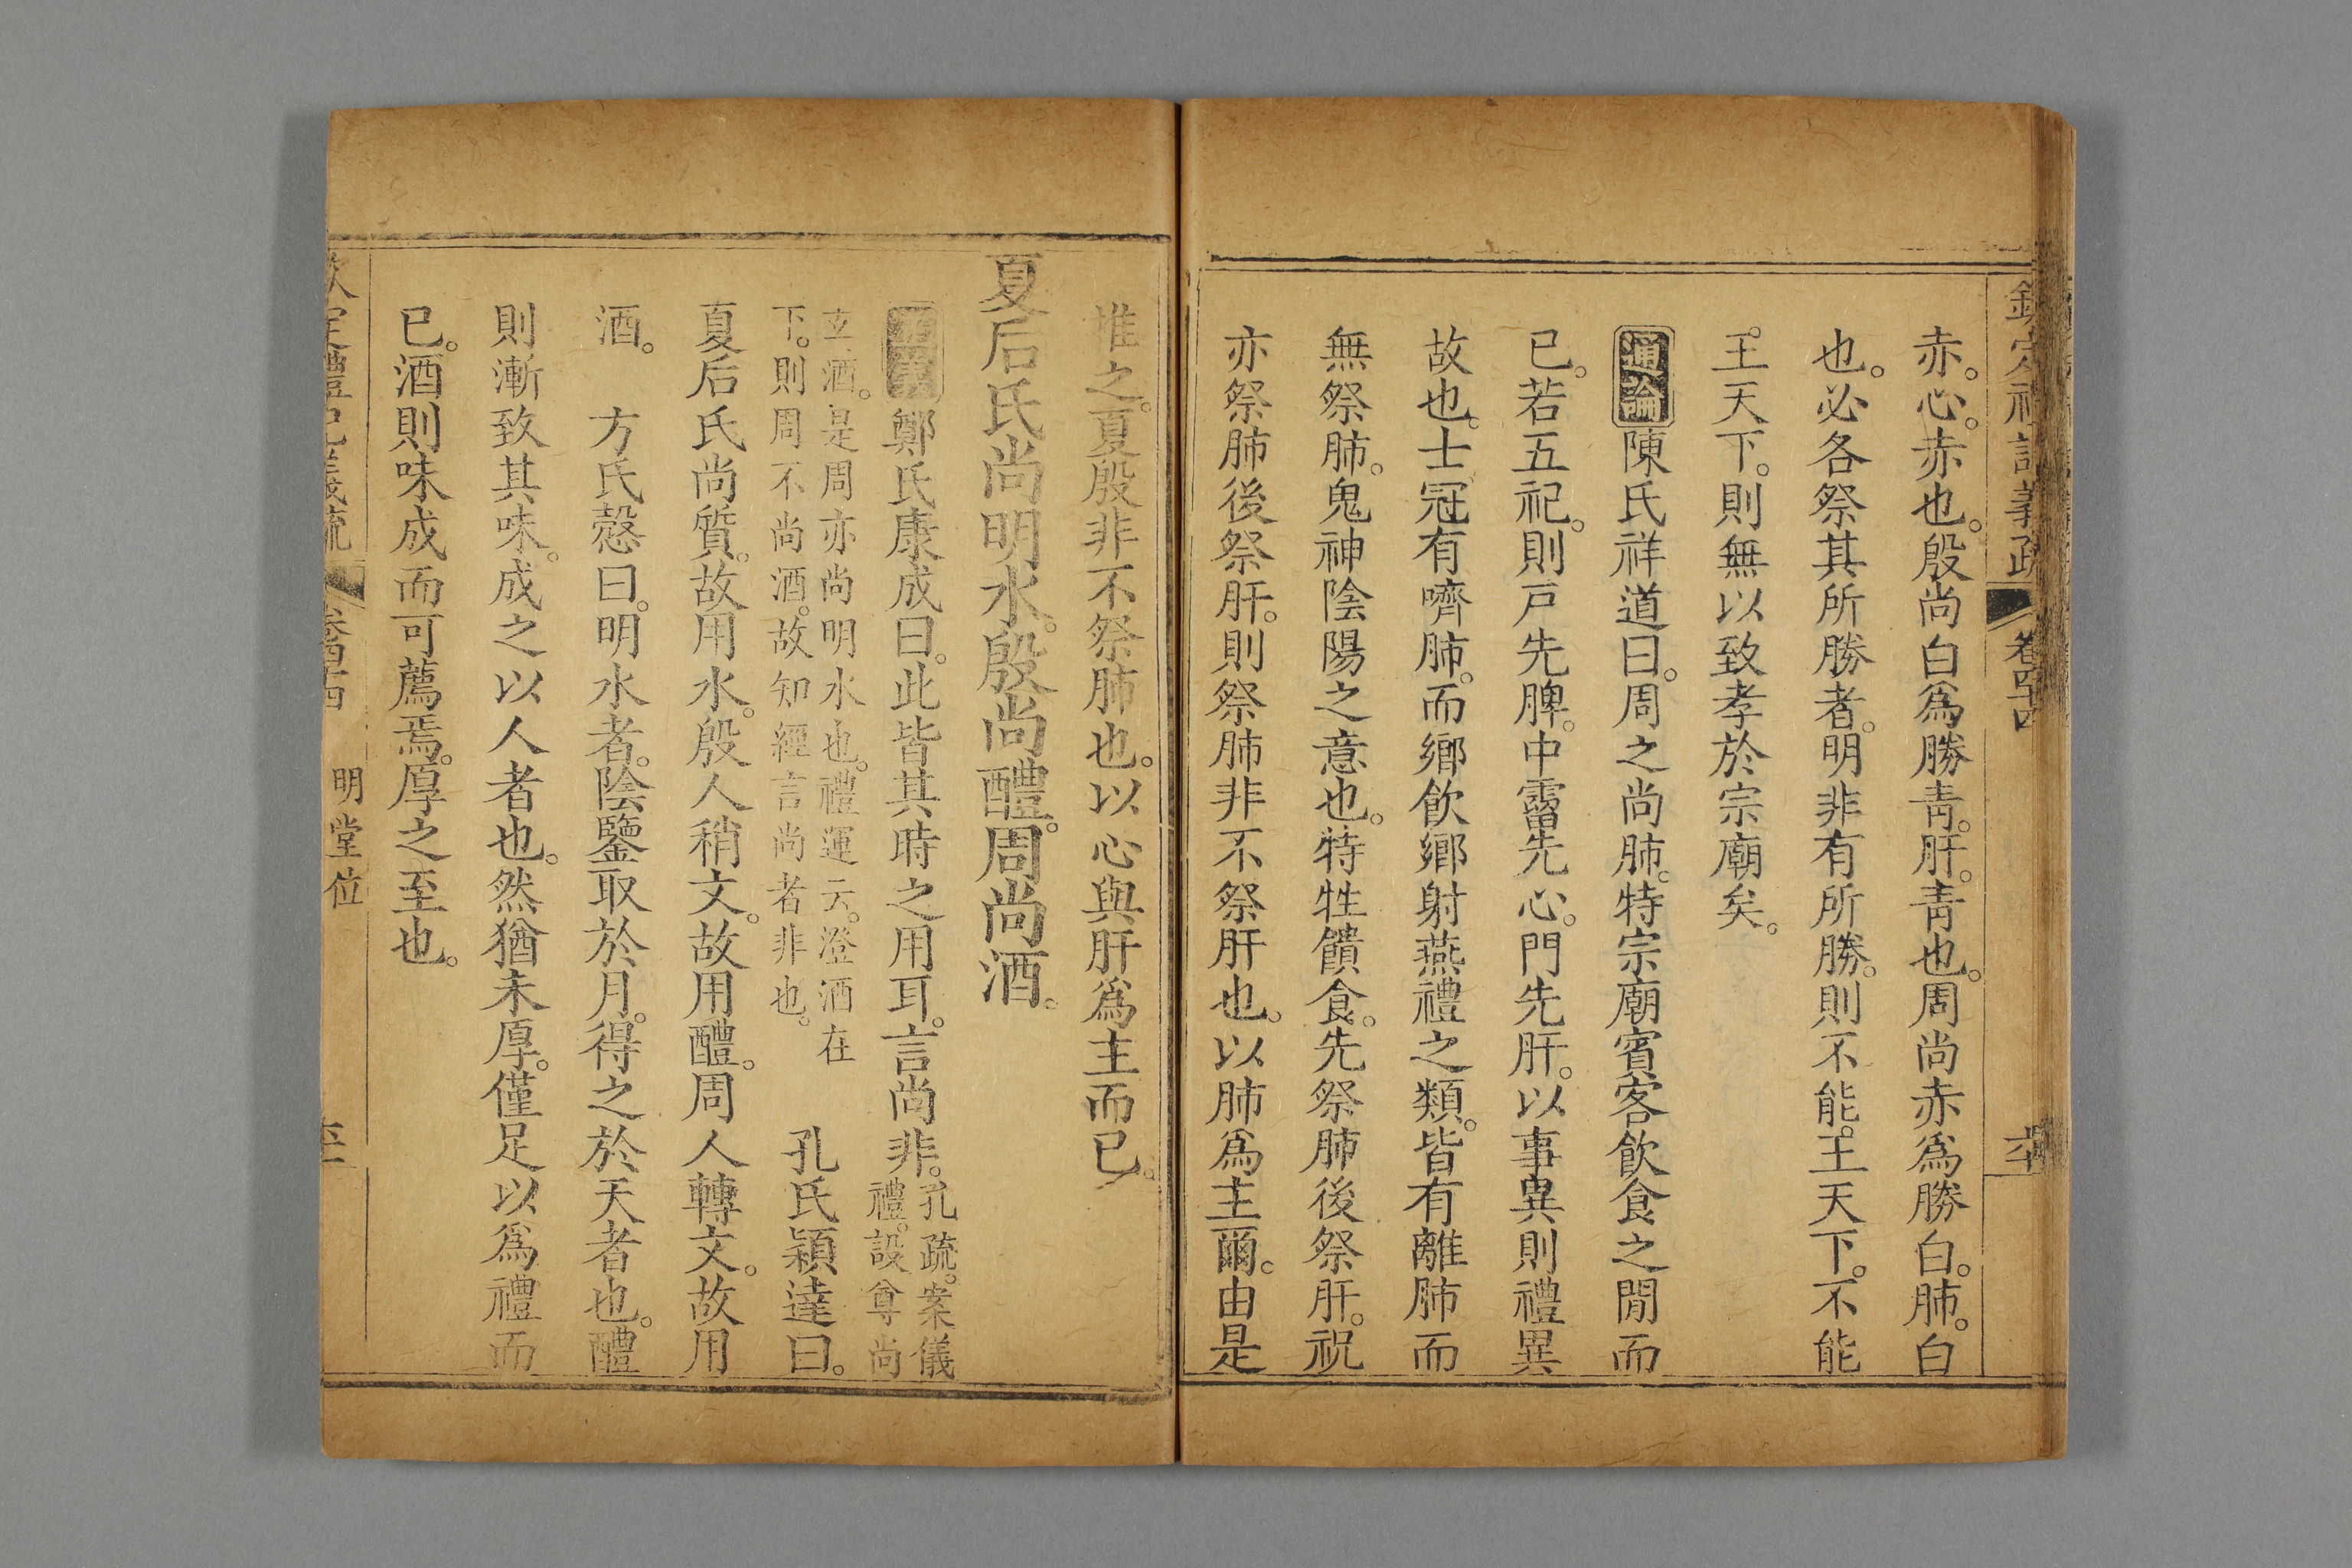 欽定禮記義疏 卷四十四 六十
赤。心。赤也。殷尚白爲勝青。肝。青也。周尚赤爲勝白。肺。白
也。必各祭其所勝者。明非有所勝。則不能王天下。不能
王天下。則無以致孝於宗廟矣。
通論陳氏祥道曰。周之尚肺。特宗廟賓客飲食之閒而
已。若五祀。則戸先脾。中霤先心。門先肝。以事異則禮異
故也。士冠有嚌肺。而鄉飲鄉射燕禮之類。皆有離肺而
無祭肺。鬼神陰陽之意也。特牲饋食。先祭肺後祭肝。祝
亦祭肺後祭肝。則祭肺非不祭肝也。以肺爲主爾。由是
推之。夏殷非不祭肺也。以心與肝爲主而已。
夏后氏尚明水。殷尚醴。周尚酒。
鄭氏康成曰。此皆其時之用耳。言尚非。孔疏。案儀
禮。設尊尚
玄酒。是周亦尚明水也。禮運云。澄酒在
下。則周不尚酒。故知經言尚者非也。 孔氏穎達曰。
夏后氏尚質。故用水。殷人稍文。故用醴。周人轉文。故用
酒。 方氏慤曰。明水者。陰鑒取於月。得之於天者也。醴
則漸致其味。成之以人者也。然猶未厚。僅足以爲禮而
已。酒則味成而可薦焉。厚之至也。
欽定禮記義疏 卷四十四 明堂位